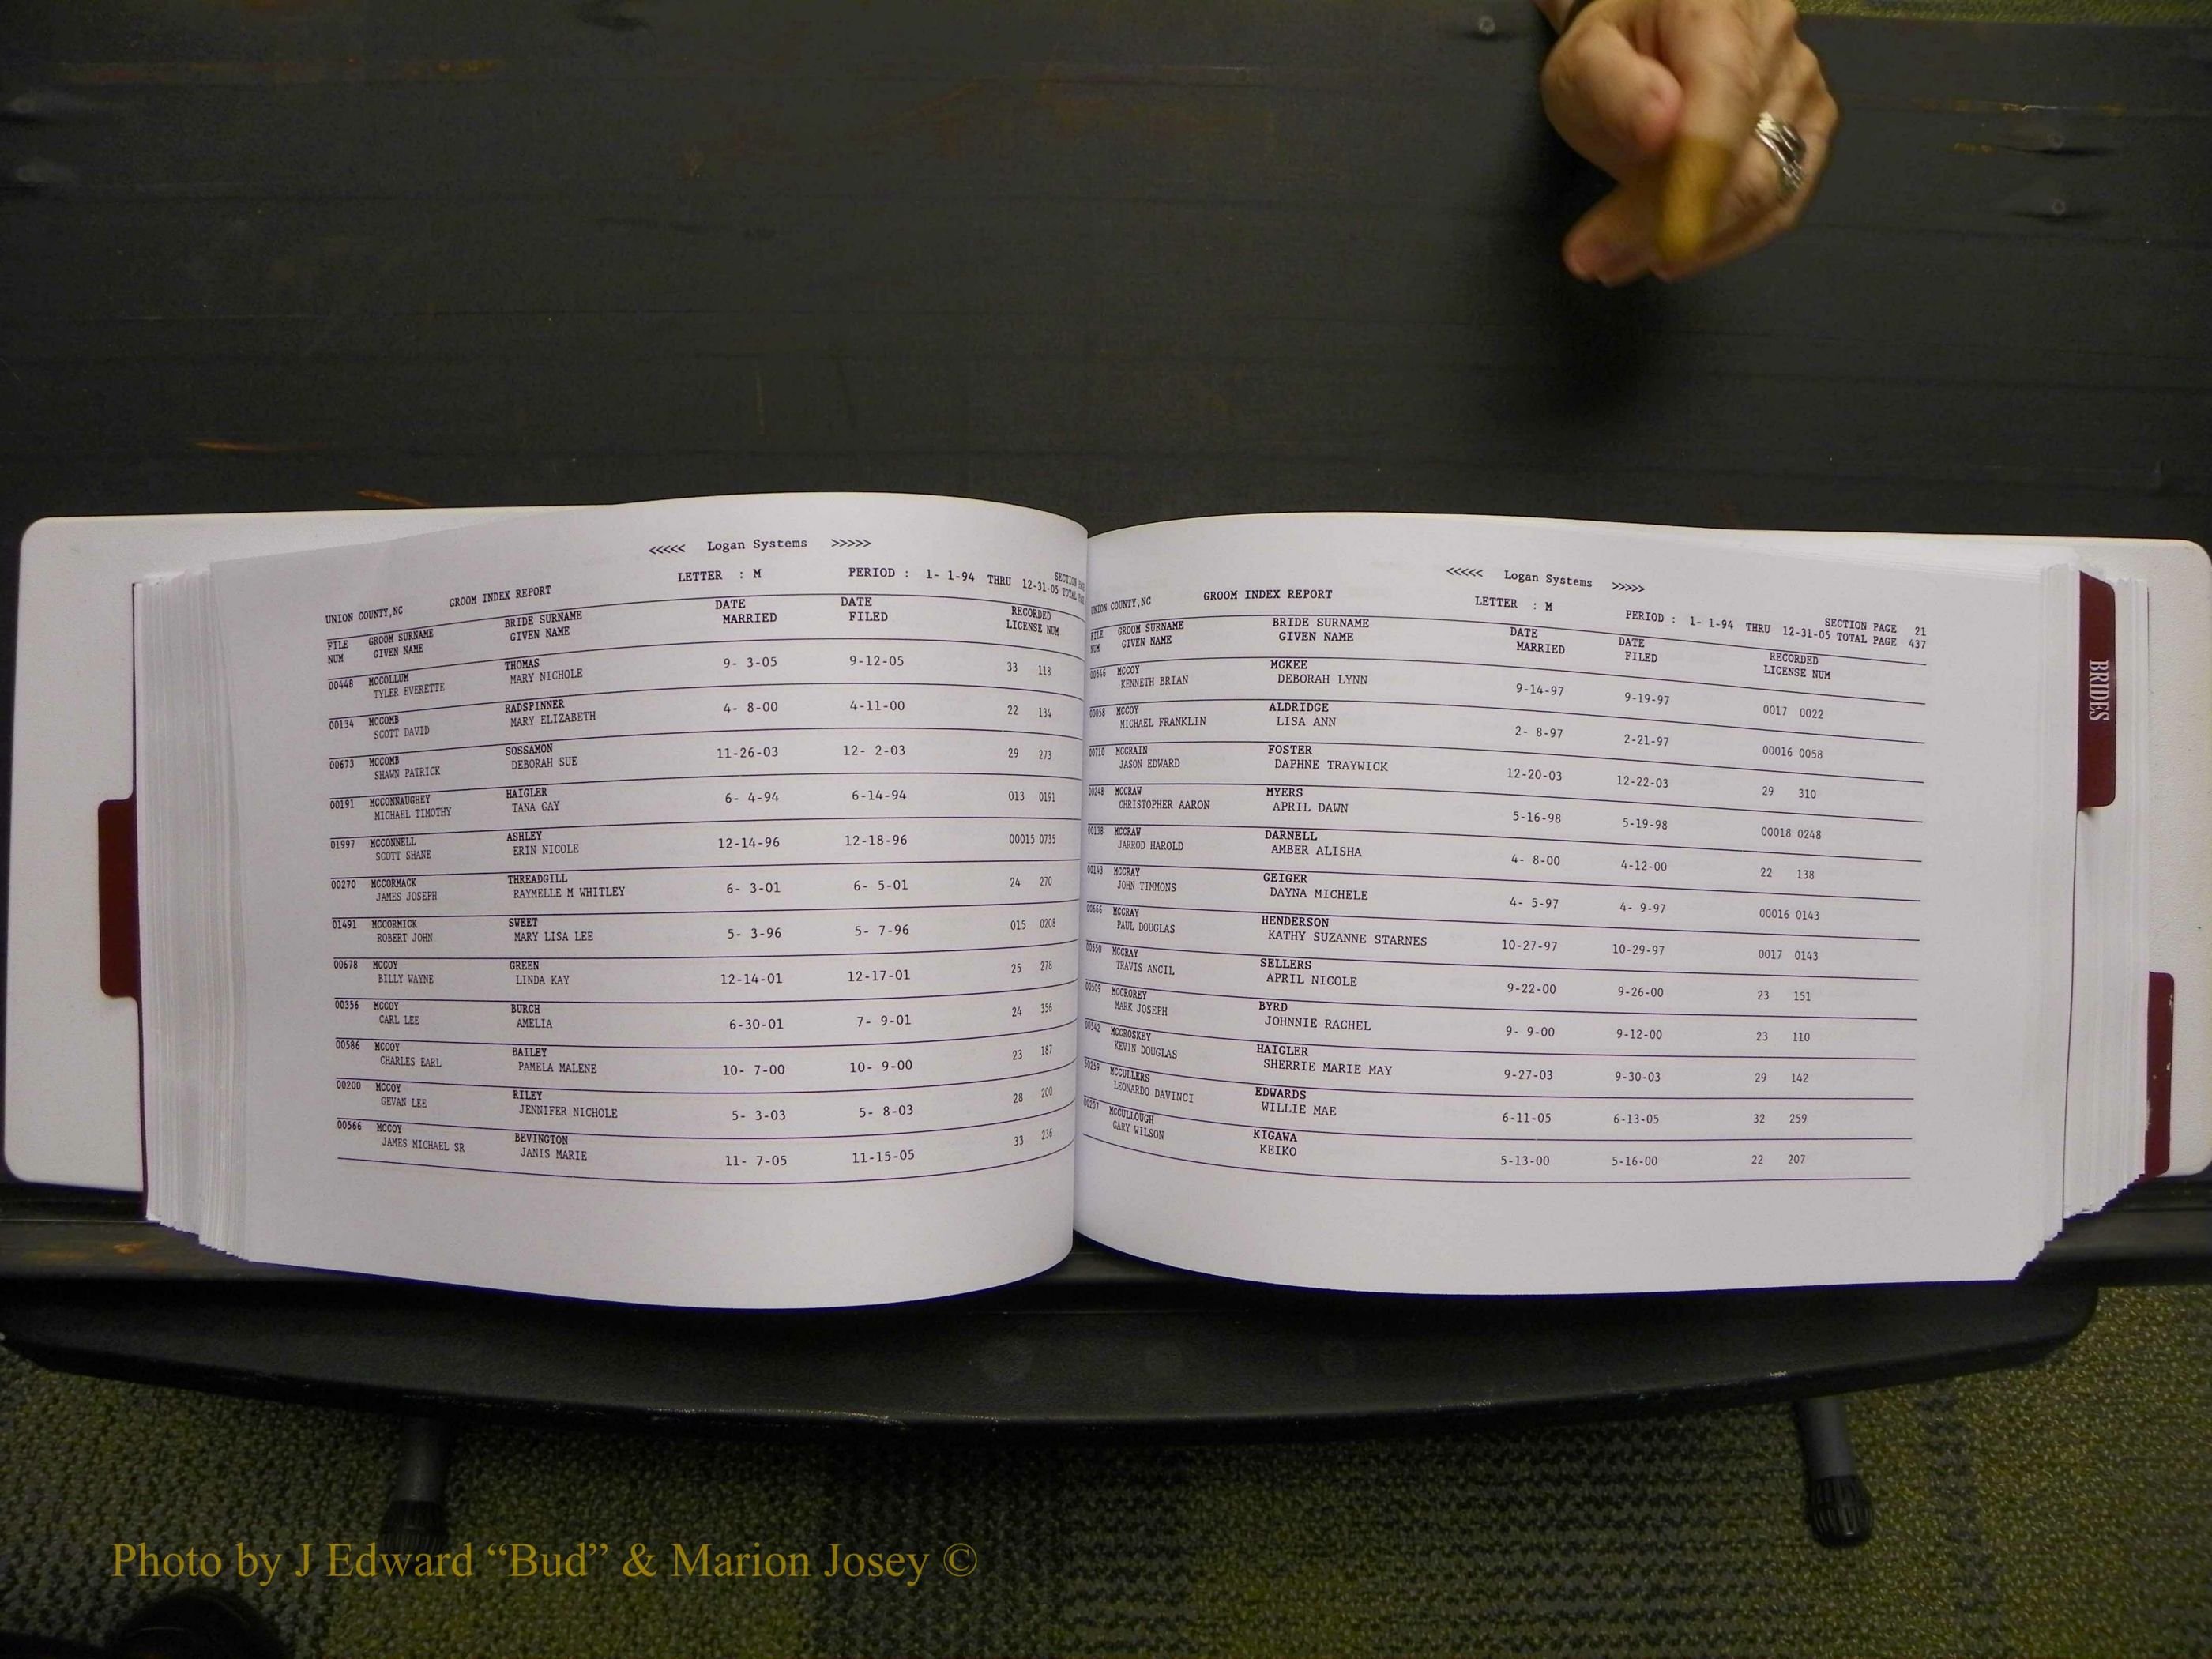 <<<<< Logan Systems >>>>>
UNION COUNTY,NC GROOM INDEX REPORT LETTER : M PERIOD : 1- 1-94 THRU 12-31-05 TOTAL
FILE GROOM SURNAME BRIDE SURNAME DATE DATE RECORDED
NUM GIVEN NAME GIVEN NAME MARRIED FILED LICENSE NUM
00448 MCCOLLUM THOMAS 9- 3-05 9-12-05 33 118
TYLER EVERETTE MARY NICHOLE
00134 MCCOMB RADSPINNER 4- 8-00 4-11-00 22 134
SCOTT DAVID MARY ELIZABETH
00673 MCCOMB SOSSAMON 11-26-03 12- 2-03 29 273
SHAWN PATRICK DEBORAH SUE
00191 MCCONNAUGHEY HAIGLER 6- 4-94 6-14-94 013 0191
MICHAEL TIMOTHY TANA GAY
01997 MCCONNELL ASHLEY 12-14-96 12-18-96 00015 0735
SCOTT SHANE ERIN NICOLE
00270 MCCORMACK THREADGILL 6- 3-01 6- 5-01 24 270
JAMES JOSEPH RAYMELLE M WHITLEY
01491 MCCORMICK SWEET 5- 3-96 5- 7-96 015 0208
ROBERT JOHN MARY LISA LEE
00678 MCCOY GREEN 12-14-01 12-17-01 25 278
BILLY WAYNE LINDA KAY
00356 MCCOY BURCH 6-30-01 7- 9-01 24 356
CARL LEE AMELIA
00586 MCCOY BAILEY 10- 7-00 10- 9-00 23 187
CHARLES EARL PAMELA MALENE
00200 MCCOY RILEY 5- 3-03 5- 8-03 28 200
GEVAN LEE JENNIFER NICHOLE
00566 MCCOY BEVINGTON 11- 7-05 11-15-05 33 236
JAMES MICHAEL SR JANIS MARIE
<<<<< Logan Systems >>>>>
SECTION PAGE 21
UNION COUNTY,NC GROOM INDEX REPORT LETTER : M PERIOD : 1- 1-94 THRU 12-31-05 TOTAL PAGE 437
FILE GROOM SURNAME BRIDE SURNAME DATE DATE RECORDED
NUM GIVEN NAME GIVEN NAME MARRIED FILED LICENSE NUM
00546 MCCOY MCKEE 9-14-97 9-19-97 0017 0022
KENNETH BRIAN DEBORAH LYNN
00058 MCCOY ALDRIDGE 2- 8-97 2-21-97 00016 0058
MICHAEL FRANKLIN LISA ANN
00710 MCCRAIN FOSTER 12-20-03 12-22-03 29 310
JASON EDWARD DAPHNE TRAYWICK
00248 MCCRAW MYERS 5-16-98 5-19-98 00018 0248
CHRISTOPHER AARON APRIL DAWN
00138 MCCRAW DARNELL 4- 8-00 4-12-00 22 138
JARROD HAROLD AMBER ALISHA
00143 MCCRAY GEIGER 4- 5-97 4- 9-97 00016 0143
JOHN TIMMONS DAYNA MICHELE
00666 MCCRAY HENDERSON 10-27-97 10-29-97 0017 0143
PAUL DOUGLAS KATHY SUZANNE STARNES
00550 MCCRAY SELLERS 9-22-00 9-26-00 23 151
TRAVIS ANCIL APRIL NICOLE
00509 MCCROREY BYRD 9- 9-00 9-12-00 23 110
MARK JOSEPH JOHNNIE RACHEL
00542 MCCROSKEY HAIGLER 9-27-03 9-30-03 29 142
KEVIN DOUGLAS SHERRIE MARIE MAY
50259 MCCULLERS EDWARDS 6-11-05 6-13-05 32 259
LEONARDO DAVINCI WILLIE MAE
00207 MCCULLOUGH KIGAWA 5-13-00 5-16-00 22 207
GARY WILSON KEIKO
BRIDES
Photo by J Edward “Bud” & Marion Josey ©